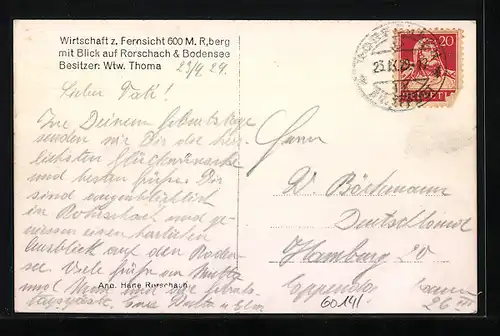 Wirtschaft z. Fernsicht 600 M. R,berg
mit Blick auf Rorschach & Bodensee
Besitzer: Wtw. Thoma
23/9 29.
20
HELVETIA
Lieber
Zu Deinem Geburtstage
senden wir Dir die herz-
lichsten Glückwünsche
und besten Grüße. Wir
sind augenblicklich
in Rohrschach und ge-
niessen einen herrlichen
Ausblick auf den Boden-
see. Viele Grüße an Mutti
und
Herrn
W. Böckmann
Deutschland
Hamburg 20
Eppendo
26 III
60141